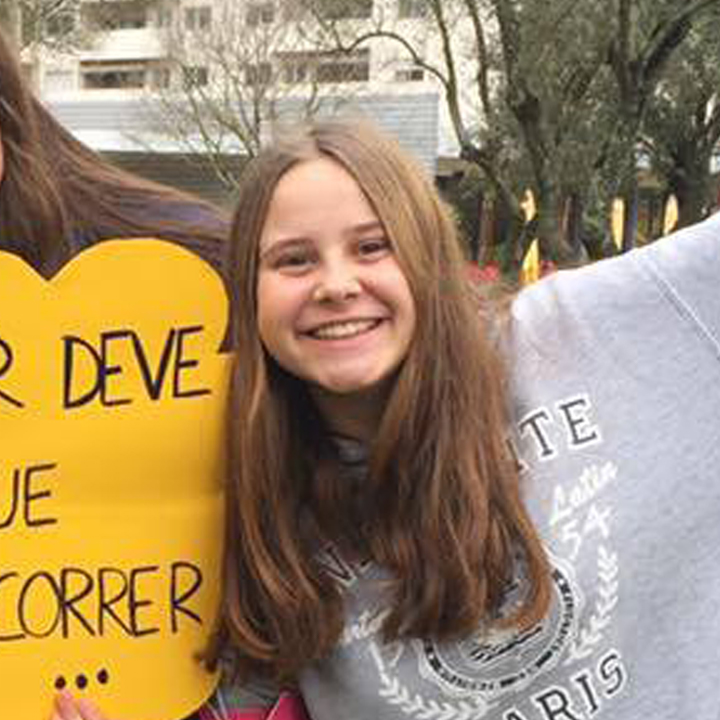 R DEVE
UE
CORRER
...
ITE
Latin
54
ARIS